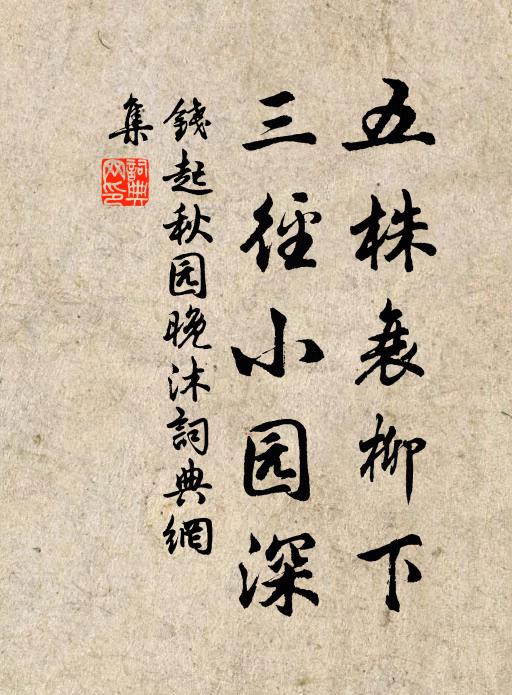 五株衰柳下
三径小园深
錢起秋园晚沐詞典網
集
詞典網印